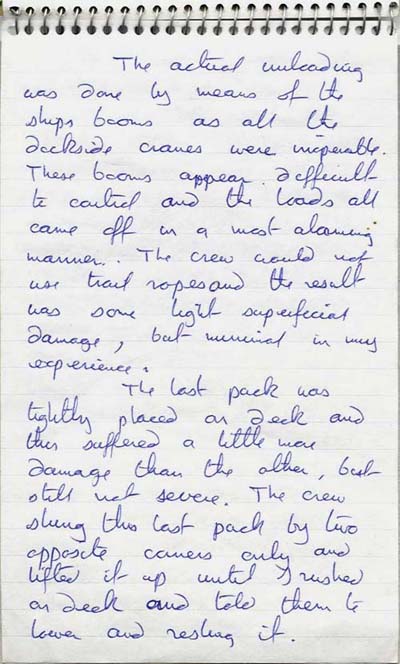 The actual unloading
was done by means of the
ships booms as all the
dockside cranes were inoperable.
These booms appear difficult
to control and the loads all
came off in a most alarming
manner. The crew would not
use trail ropes and the result
was some light superficial
damage, but minimal in my
experience.
The last pack was
tightly placed on deck and
this suffered a little more
damage than the other, but
still not severe. The crew
slung this last pack by two
opposite corners only and
lifted it up until I rushed
on deck and told them to
lower and resling it.